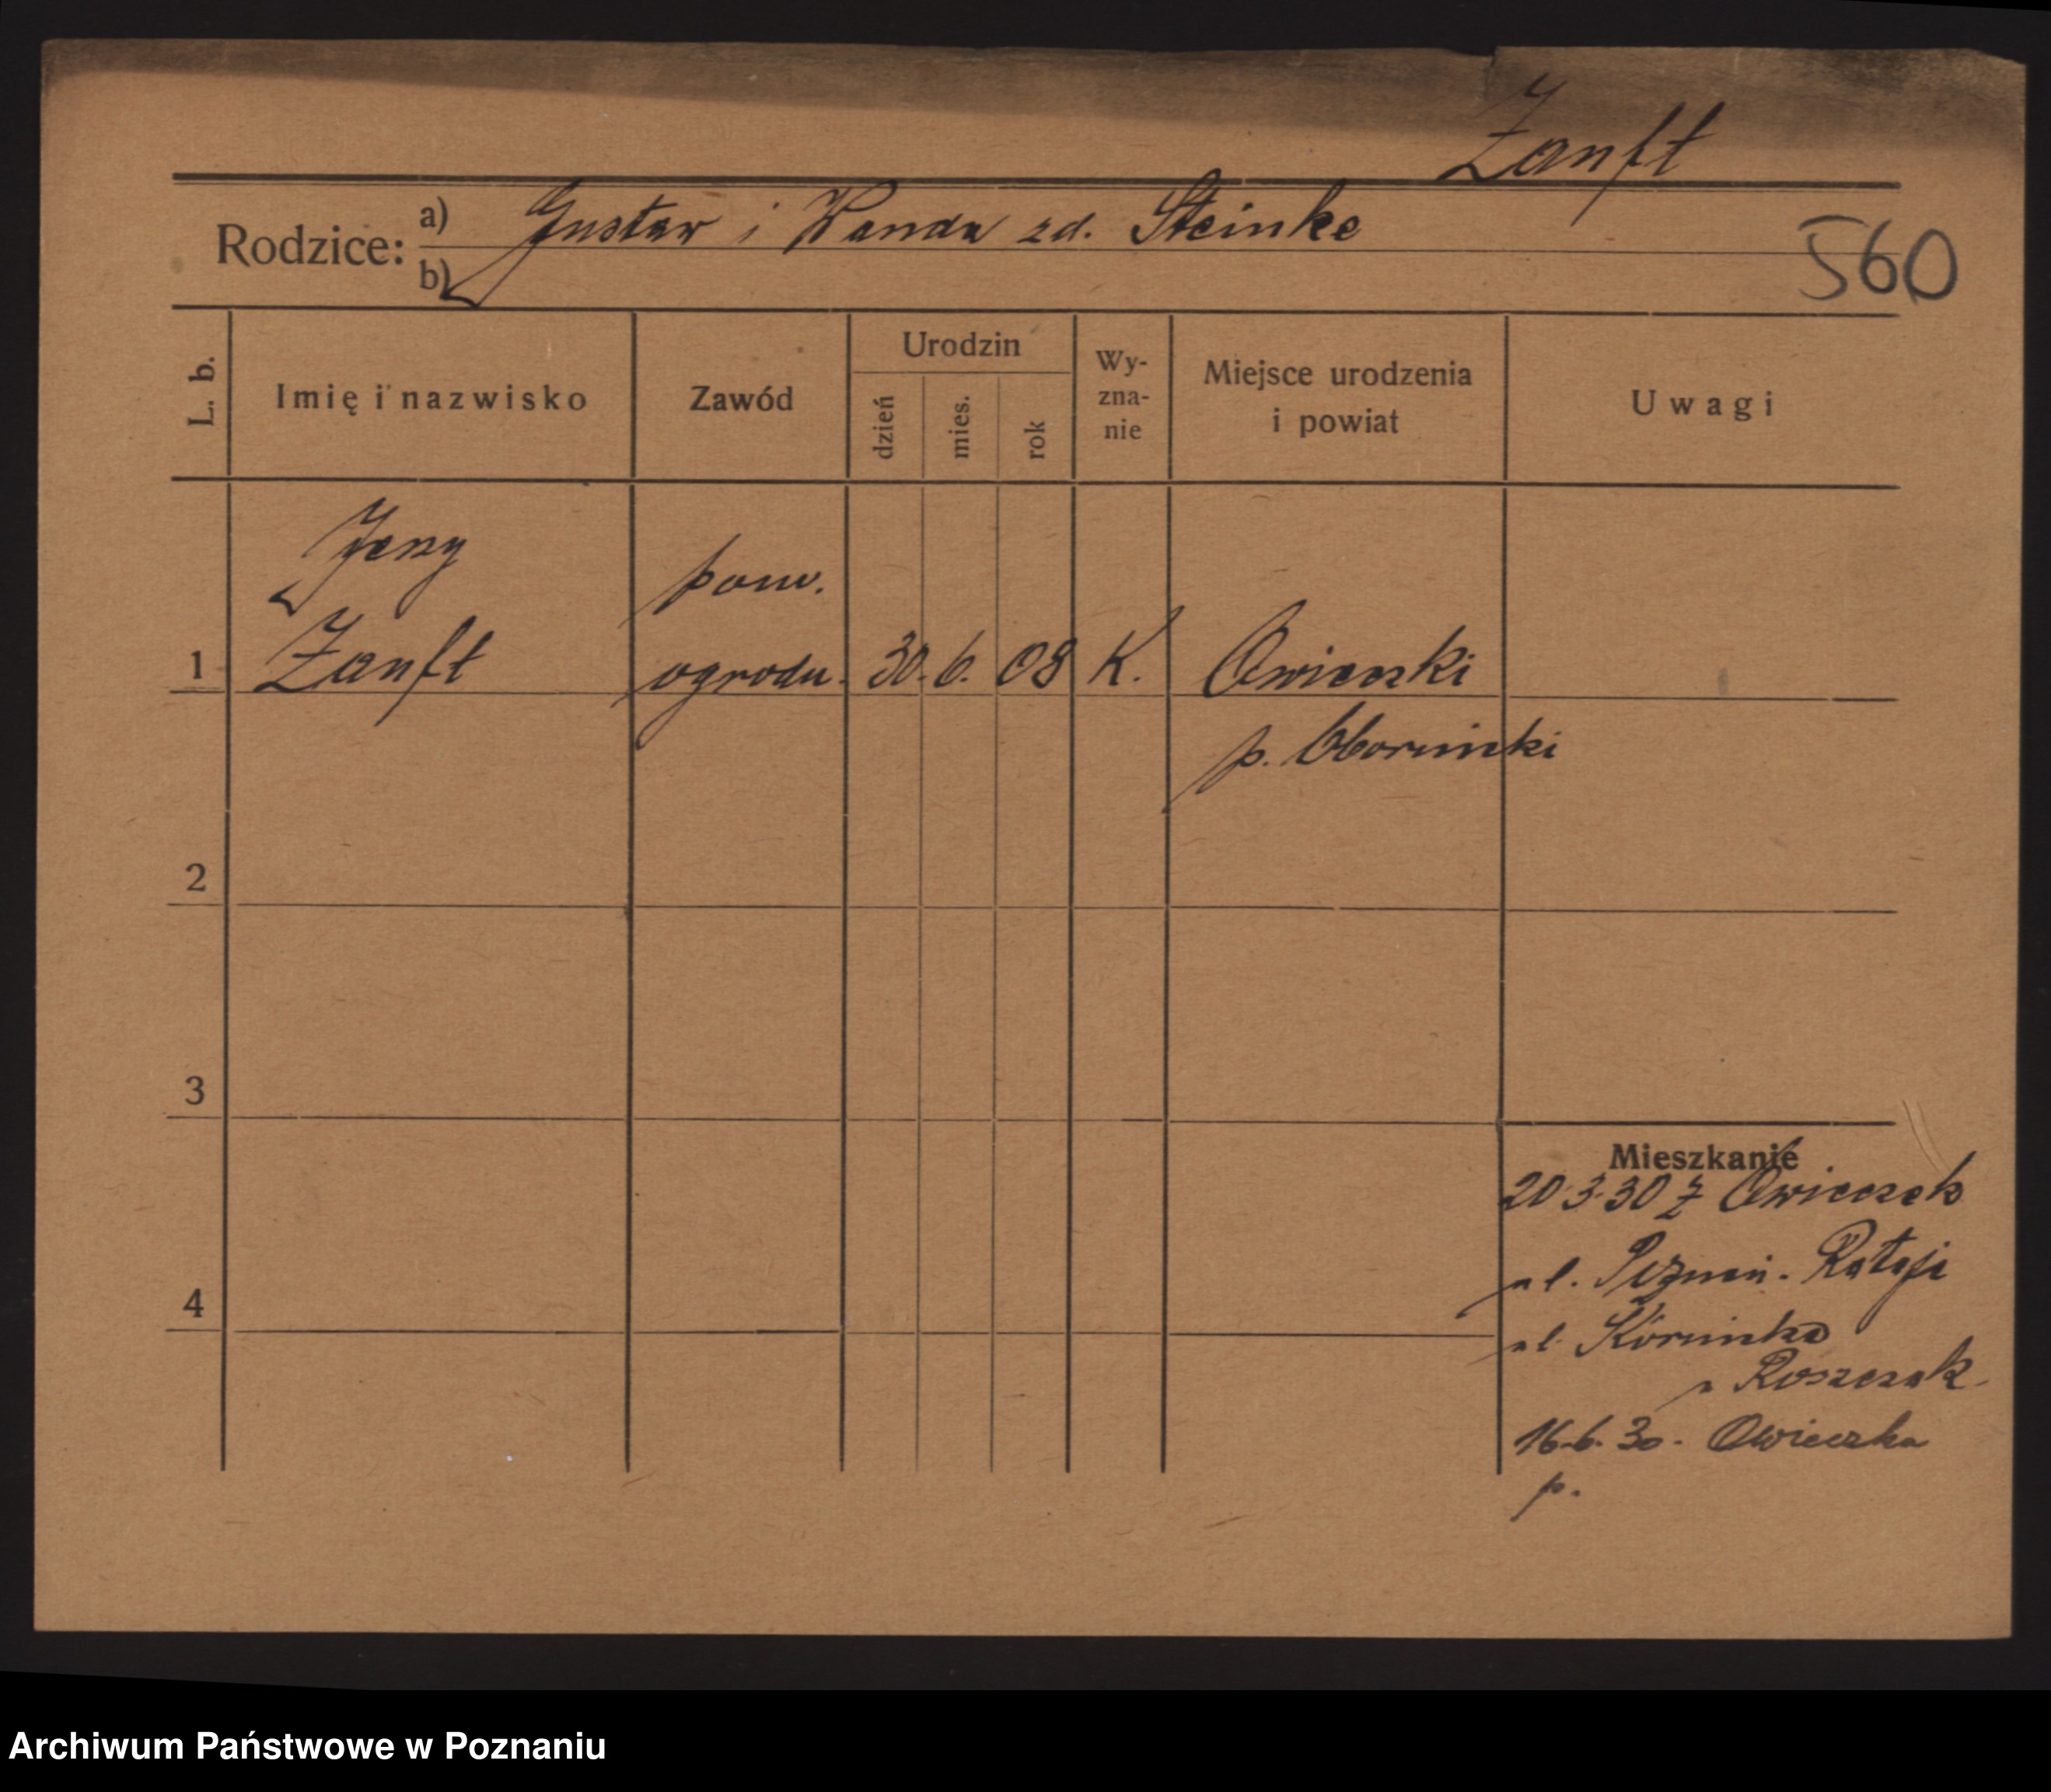 Zanft
Rodzice: a) Gustaw i Wanda zd. Steinke
b)
560
L. b. Imię i nazwisko Zawód Urodzin dzień mies. rok Wy-zna-nie Miejsce urodzenia i powiat Uwagi
Jerzy pom.
1 Zanft ogrodn. 30. 6. 08 K. Owieczki
p. Obornicki
2
3
Mieszkanie
20 3 30 z Owieczek
ul. Rataje
4 ul. Kórnicka
u Roszczak.
16.6.30. Owieczka
p.
Archiwum Państwowe w Poznaniu